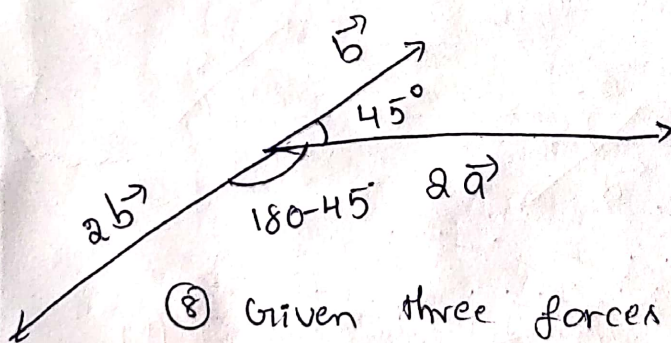 b⃗
45°
2b⃗
180-45°
2a⃗
⑧ Given three forces